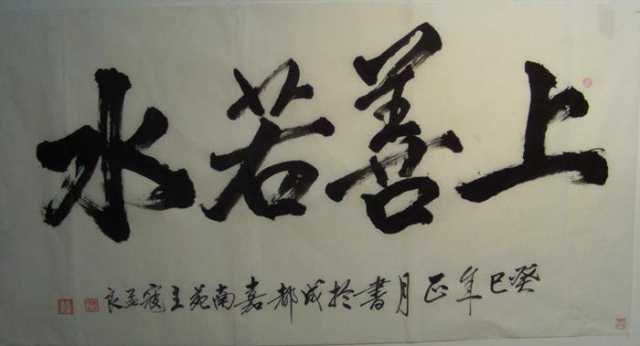 上善若水
癸巳年正月書於成都嘉南苑主寇孟良